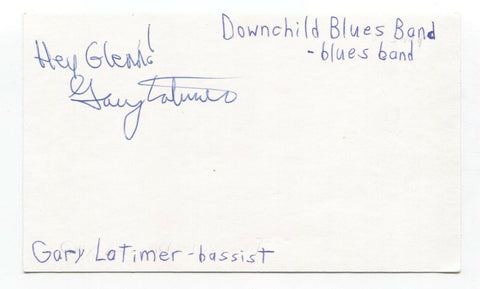 Downchild Blues Band
-blues band
Hey Glenn!
Gary Latimer
Gary Latimer-bassist